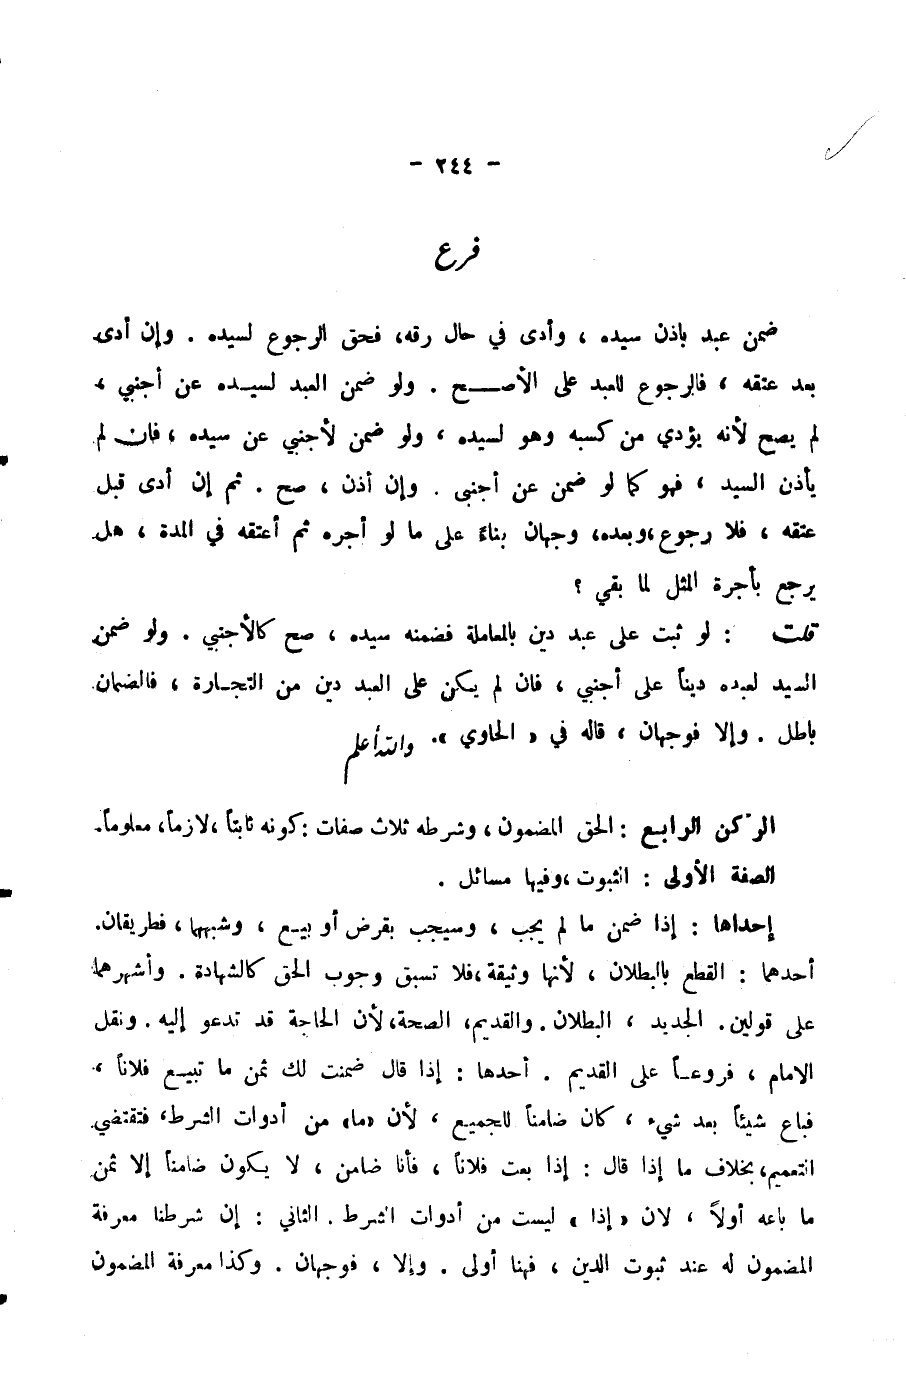 - ٢٤٤ -
فرع
ضمن عبد باذن سيده ، وأدى في حال رقه، فحق الرجوع لسيده . وإن أدى
بعد عتقه ، فالرجوع للعبد على الأصـــح . ولو ضمن العبد لسيـده عن أجنبي ،
لم يصح لأنه يؤدي من كسبه وهو لسيده ، ولو ضمن لأجنبي عن سيده ، فان لم
يأذن السيد ، فهو كما لو ضمن عن أجنبي . وإن أذن ، صح . ثم إن أدى قبل
عتقه ، فلا رجوع ،وبعده، وجهان بناءً على ما لو أجره ثم أعتقه في المدة ، هل
يرجع بأجرة المثل لما بقي ؟
قلت : لو ثبت على عبد دين بالمعاملة فضمنه سيده ، صح كالأجنبي . ولو ضمن
السيد لعبده ديناً على أجنبي ، فان لم يكن على العبد دين من التجـارة ، فالضمان
باطل . وإلا فوجهان ، قاله في « الحاوي ». والله أعلم
الركن الرابع : الحق المضمون ، وشرطه ثلاث صفات :كونه ثابتاً ،لازماً، معلوماً.
الصفة الأولى : الثبوت ،وفيها مسائل .
إحداها : إذا ضمن ما لم يجب ، وسيجب بقرض أو بيـع ، وشبهها ، فطريقان.
أحدهما : القطع بالبطلان ، لأنها وثيقة ،فلا تسبق وجوب الحق كالشهادة . وأشهرهما
على قولين. الجديد ، البطلان . والقديم، الصحة، لأن الحاجة قد تدعو إليه . ونقل
الامام ، فروعـاً على القديم . أحدها : إذا قال ضمنت لك ثمن ما تبيـع فلاناً ،
فباع شيئاً بعد شيء ، كان ضامناً للجميع ، لأن «ما» من أدوات الشرط، فتقتضي
التعميم، بخلاف ما إذا قال : إذا بعت فلاناً ، فأنا ضامن ، لا يكون ضامناً إلا ثمن
ما باعه أولاً ، لان « إذا » ليست من أدوات الشرط . الثاني : إن شرطنا معرفة
المضمون له عند ثبوت الدين ، فهنا أولى . وإلا ، فوجهان . وكذا معرفة المضمون